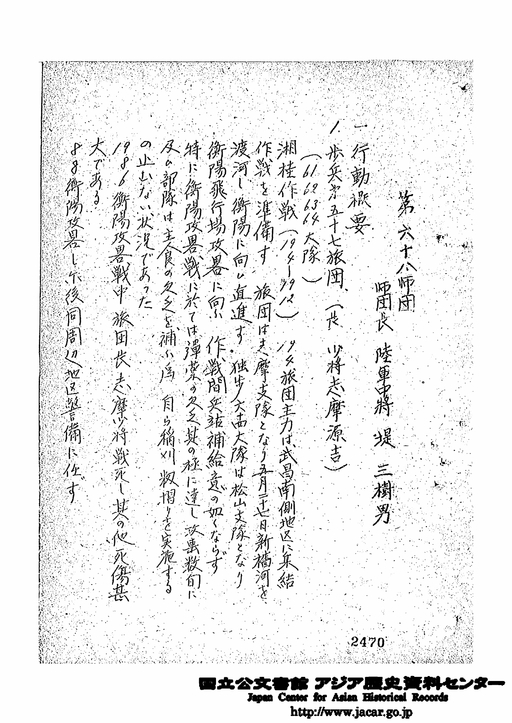 第六十八師団
師団長 陸軍中將 堤 三樹男
一 行動概要
1. 歩兵第五十七旅団 (長 少將志摩源吉)
(61 62 63 64大隊)
湘桂作戦 (19.4―19.12) 19.4旅団主力は武昌南側地区に集結
作戦を準備す 旅団は志摩支隊となり五月二十七日新橋河を
渡河し衡陽に向ひ直進す 独歩六四大隊は松山支隊となり
衡陽飛行場攻畧に向ふ 作戦間兵站補給意の如くならず
特に衡陽攻畧戦に於ては彈薬の欠乏其の極に達し攻畧数旬に
及ぶ部隊は主食の欠乏を補ふ為 自ら稲刈 籾摺りを実施する
の止むない状況であった
19.8.6衡陽攻畧戦中 旅団長志摩少將戦死し其の他死傷甚
大である
8.8衡陽攻畧し 尓後同周辺地区警備に任ず
2470
国立公文書館 アジア歴史資料センター
Japan Center for Asian Historical Records
http://www.jacar.go.jp